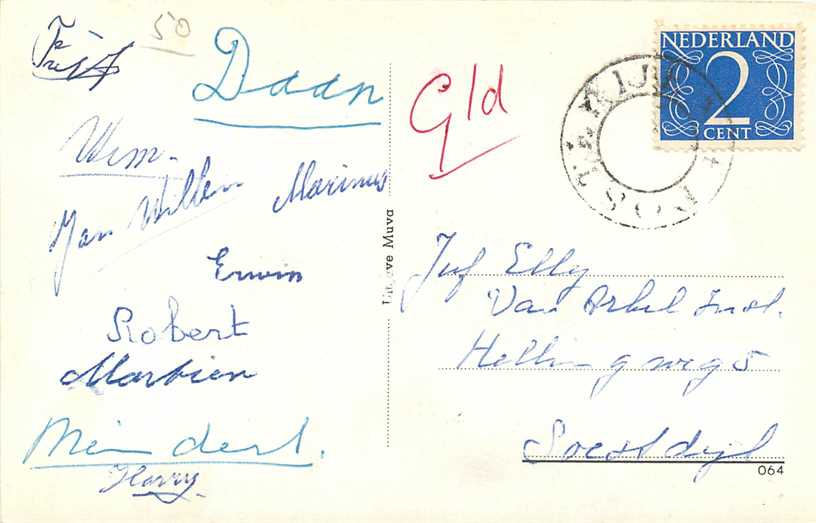 50
Daan
Gld
NEDERLAND
2
CENT
Wim.
Jan Willem
Marinus
Erwin
Robert
Martien
Meindert.
Harry.
Uitgave Muva
Juf Elly
Van Arkel Inst.
Hellingweg 5
Soestdijk
064